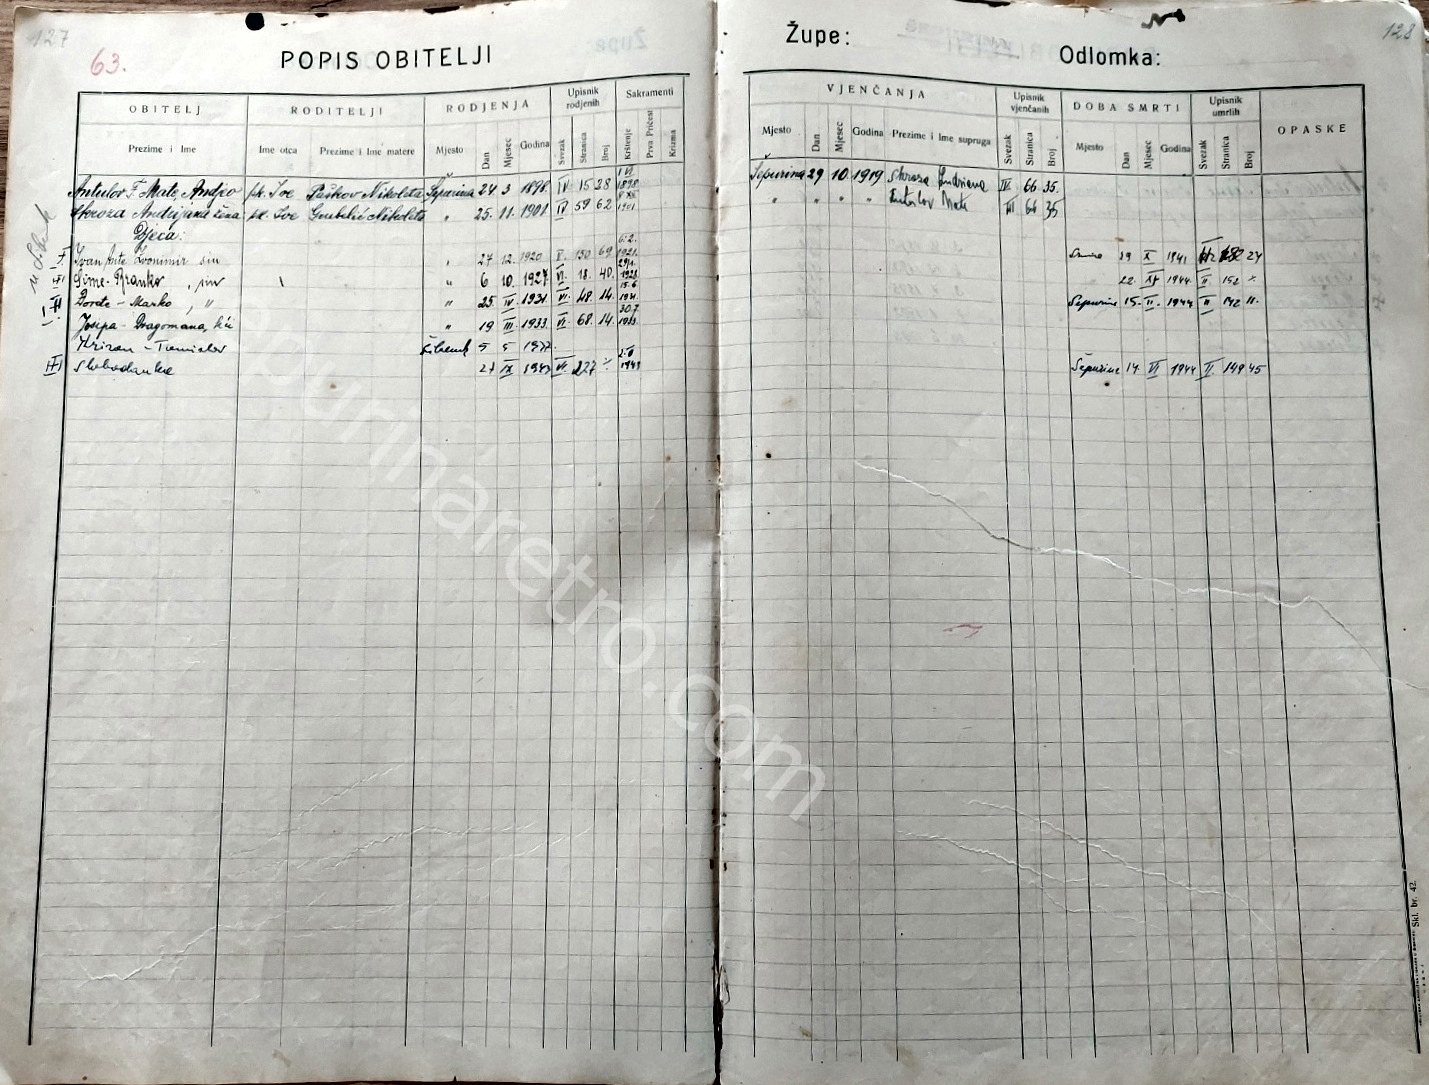 127
63.
POPIS OBITELJI
Župe:
Odlomka:
128
OBITELJ RODITELJI RODJENJA Upisnik rodjenih Sakramenti
VJENČANJA Upisnik vjenčanih DOBA SMRTI Upisnik umrlih OPASKE
Prezime i Ime Ime otca Prezime i Ime matere Mjesto Dan Mjesec Godina Svezak Stranica Broj Krštenje Prva Pričest Krizma
Mjesto Dan Mjesec Godina Prezime i Ime supruga Svezak Stranica Broj Mjesto Dan Mjesec Godina Svezak Stranica Broj
Antulov F. Mate, Andro pk. Ive Paškov Nikoleta Šepurina 24 3 1898 IV 15 28 1898
Šepurina 29 10. 1919 Skroza IV. 66 35.
Skroza Andrijana žena pk. Ive Grubelić Nikoleta " 25. 11. 1901. IV 59 62 1901
" " " " Antulov Mate III 66 35
Djeca:
Ivan Ante Zvonimir sin " 27 12. 1920 V. 150 69 1921.
19 X 1941 27
Šime-Branko, sin " 6 10. 1927 VI. 18. 40. 1928
" 22. XI 1944 II 152
Dorote - Marko, " " 25. IV 1931 VI. 48. 14. 1931.
Šepurine 15. II. 1944 II 142 11.
Josipa - Dragomana, kći " 19 III. 1933. VI. 68. 14. 30.7 1933.
Krizan - Tomislav Šibenik 5 5 1937.
Slobodanka 27 IX 1943 VI. 227 1943
Šepurine 14. VI 1944 II. 149 45
Skl. br. 42.
sepurinaretro.com